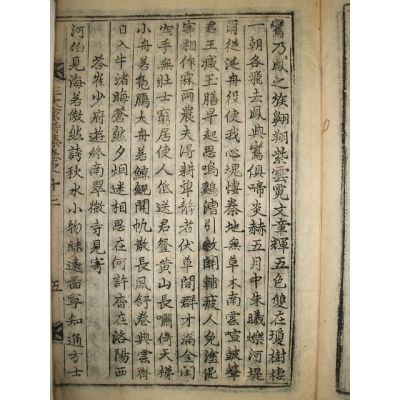 鸞乃鳳之族翱翔紫雲霓文章輝五色雙在瓊樹棲
一朝各飛去鳳與鸞俱啼炎赫五月中朱曦爍河堤
爾從泛舟役使我心魂悽秦地無草木南雲喧皷鼙
君王减玉膳早起思鳴鷄漕引救關輔疲人免塗泥
宰相作霖雨農夫得耕犂靜者伏草間群才滿金閨
空手無壯士窮居使人低送君登黄山長嘯倚天梯
小舟若鳧鴈大舟若鯨鯢開帆散長風舒卷與雲齊
日入牛渚晦蒼然夕烟迷相思在何許杳在洛陽西
荅崔少府遊終南翠微寺見寄
河伯見海若傲然誇秋水小物昧遠圖寧知通方士
卷之十二
五